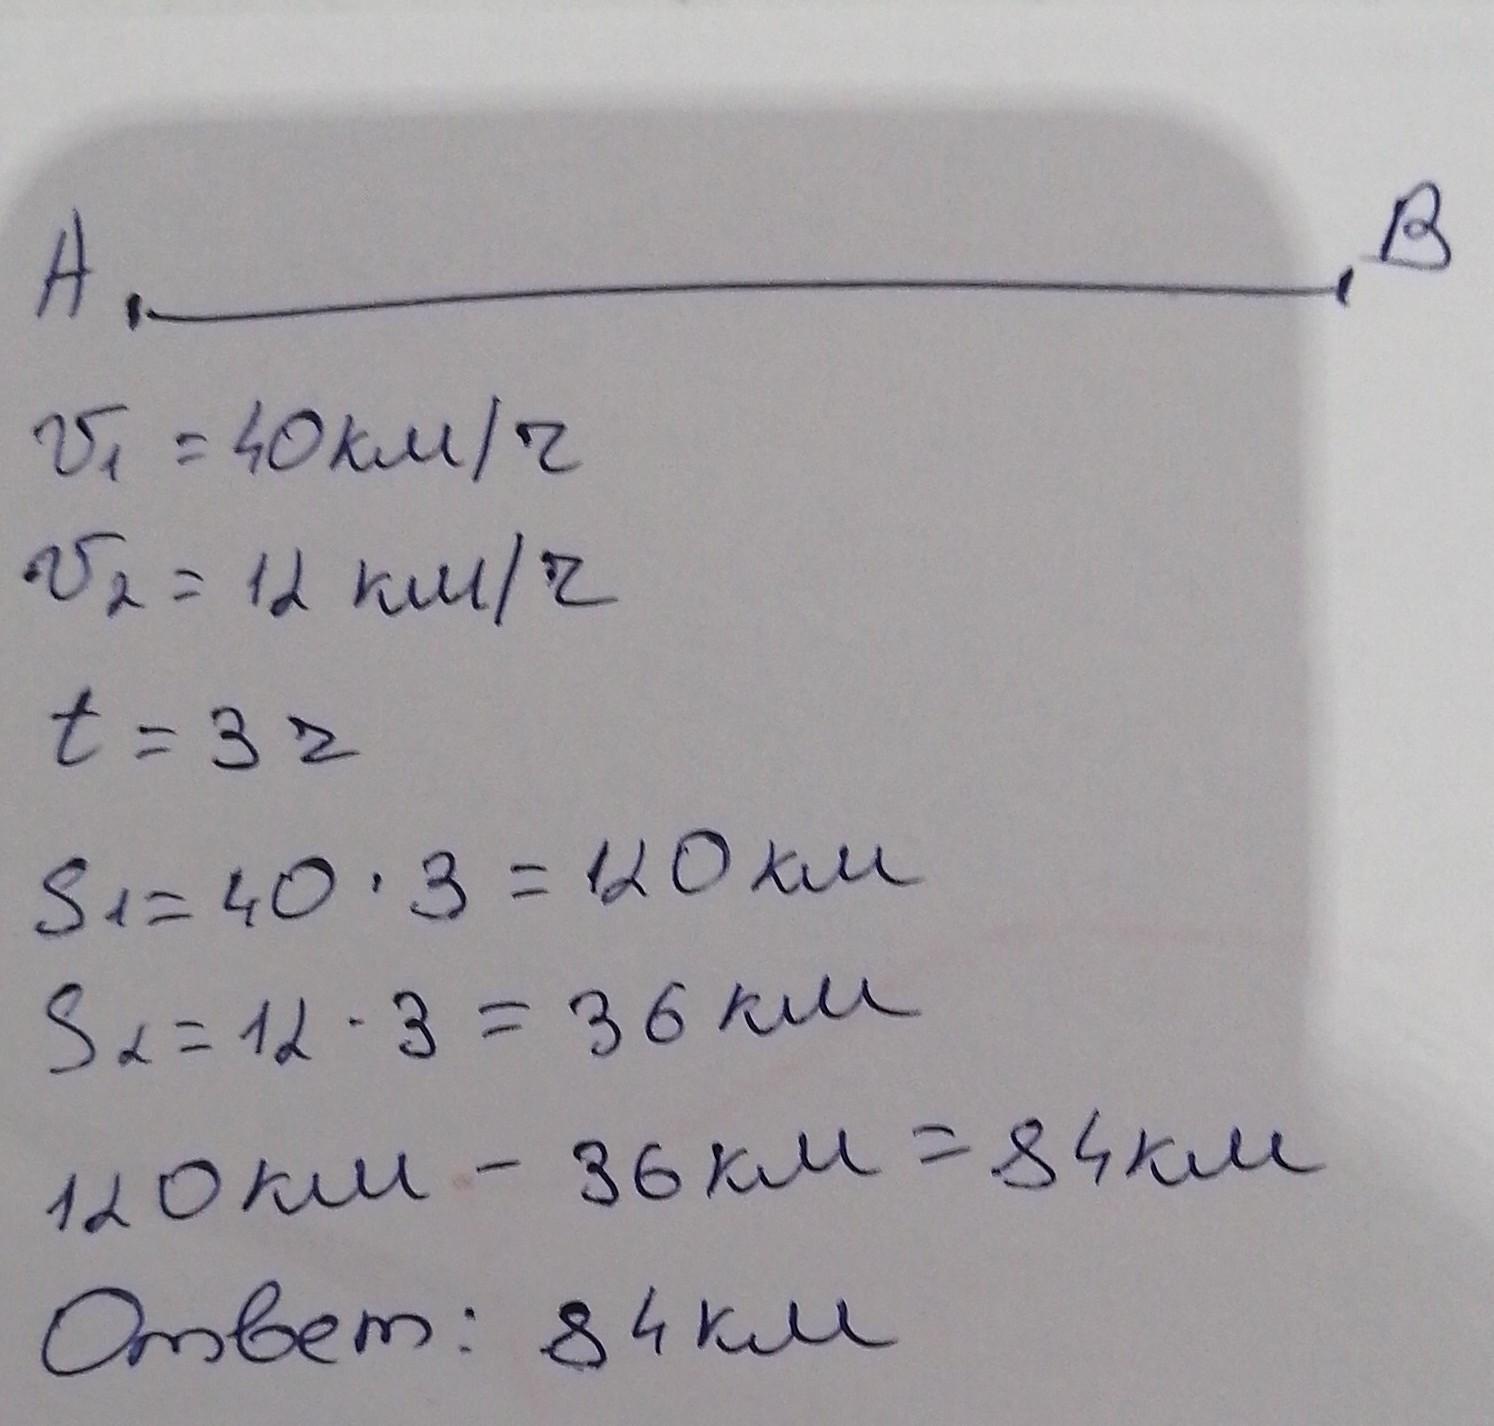 A B
v₁ = 40км/ч
v₂ = 12 км/ч
t = 3 ч
S₁ = 40 · 3 = 120км
S₂ = 12 · 3 = 36 км
120км - 36км = 84км
Ответ: 84км